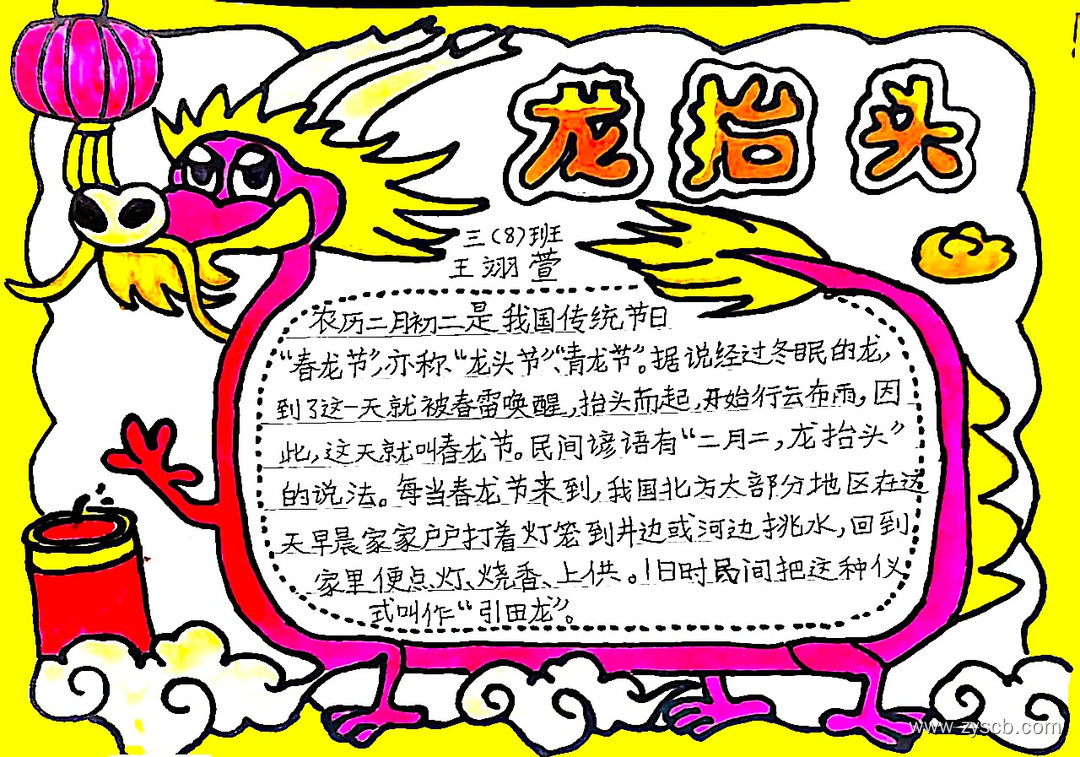 龙抬头
三(8)班
王翊萱
农历二月初二是我国传统节日
“春龙节”,亦称“龙头节”“青龙节”。据说经过冬眠的龙,
到了这一天就被春雷唤醒,抬头而起,开始行云布雨,因
此,这天就叫春龙节。民间谚语有“二月二,龙抬头”
的说法。每当春龙节来到,我国北方大部分地区在这
天早晨家家户户打着灯笼到井边或河边挑水,回到
家里便点灯、烧香、上供。旧时民间把这种仪
式叫作“引田龙”。
www.zyscb.com